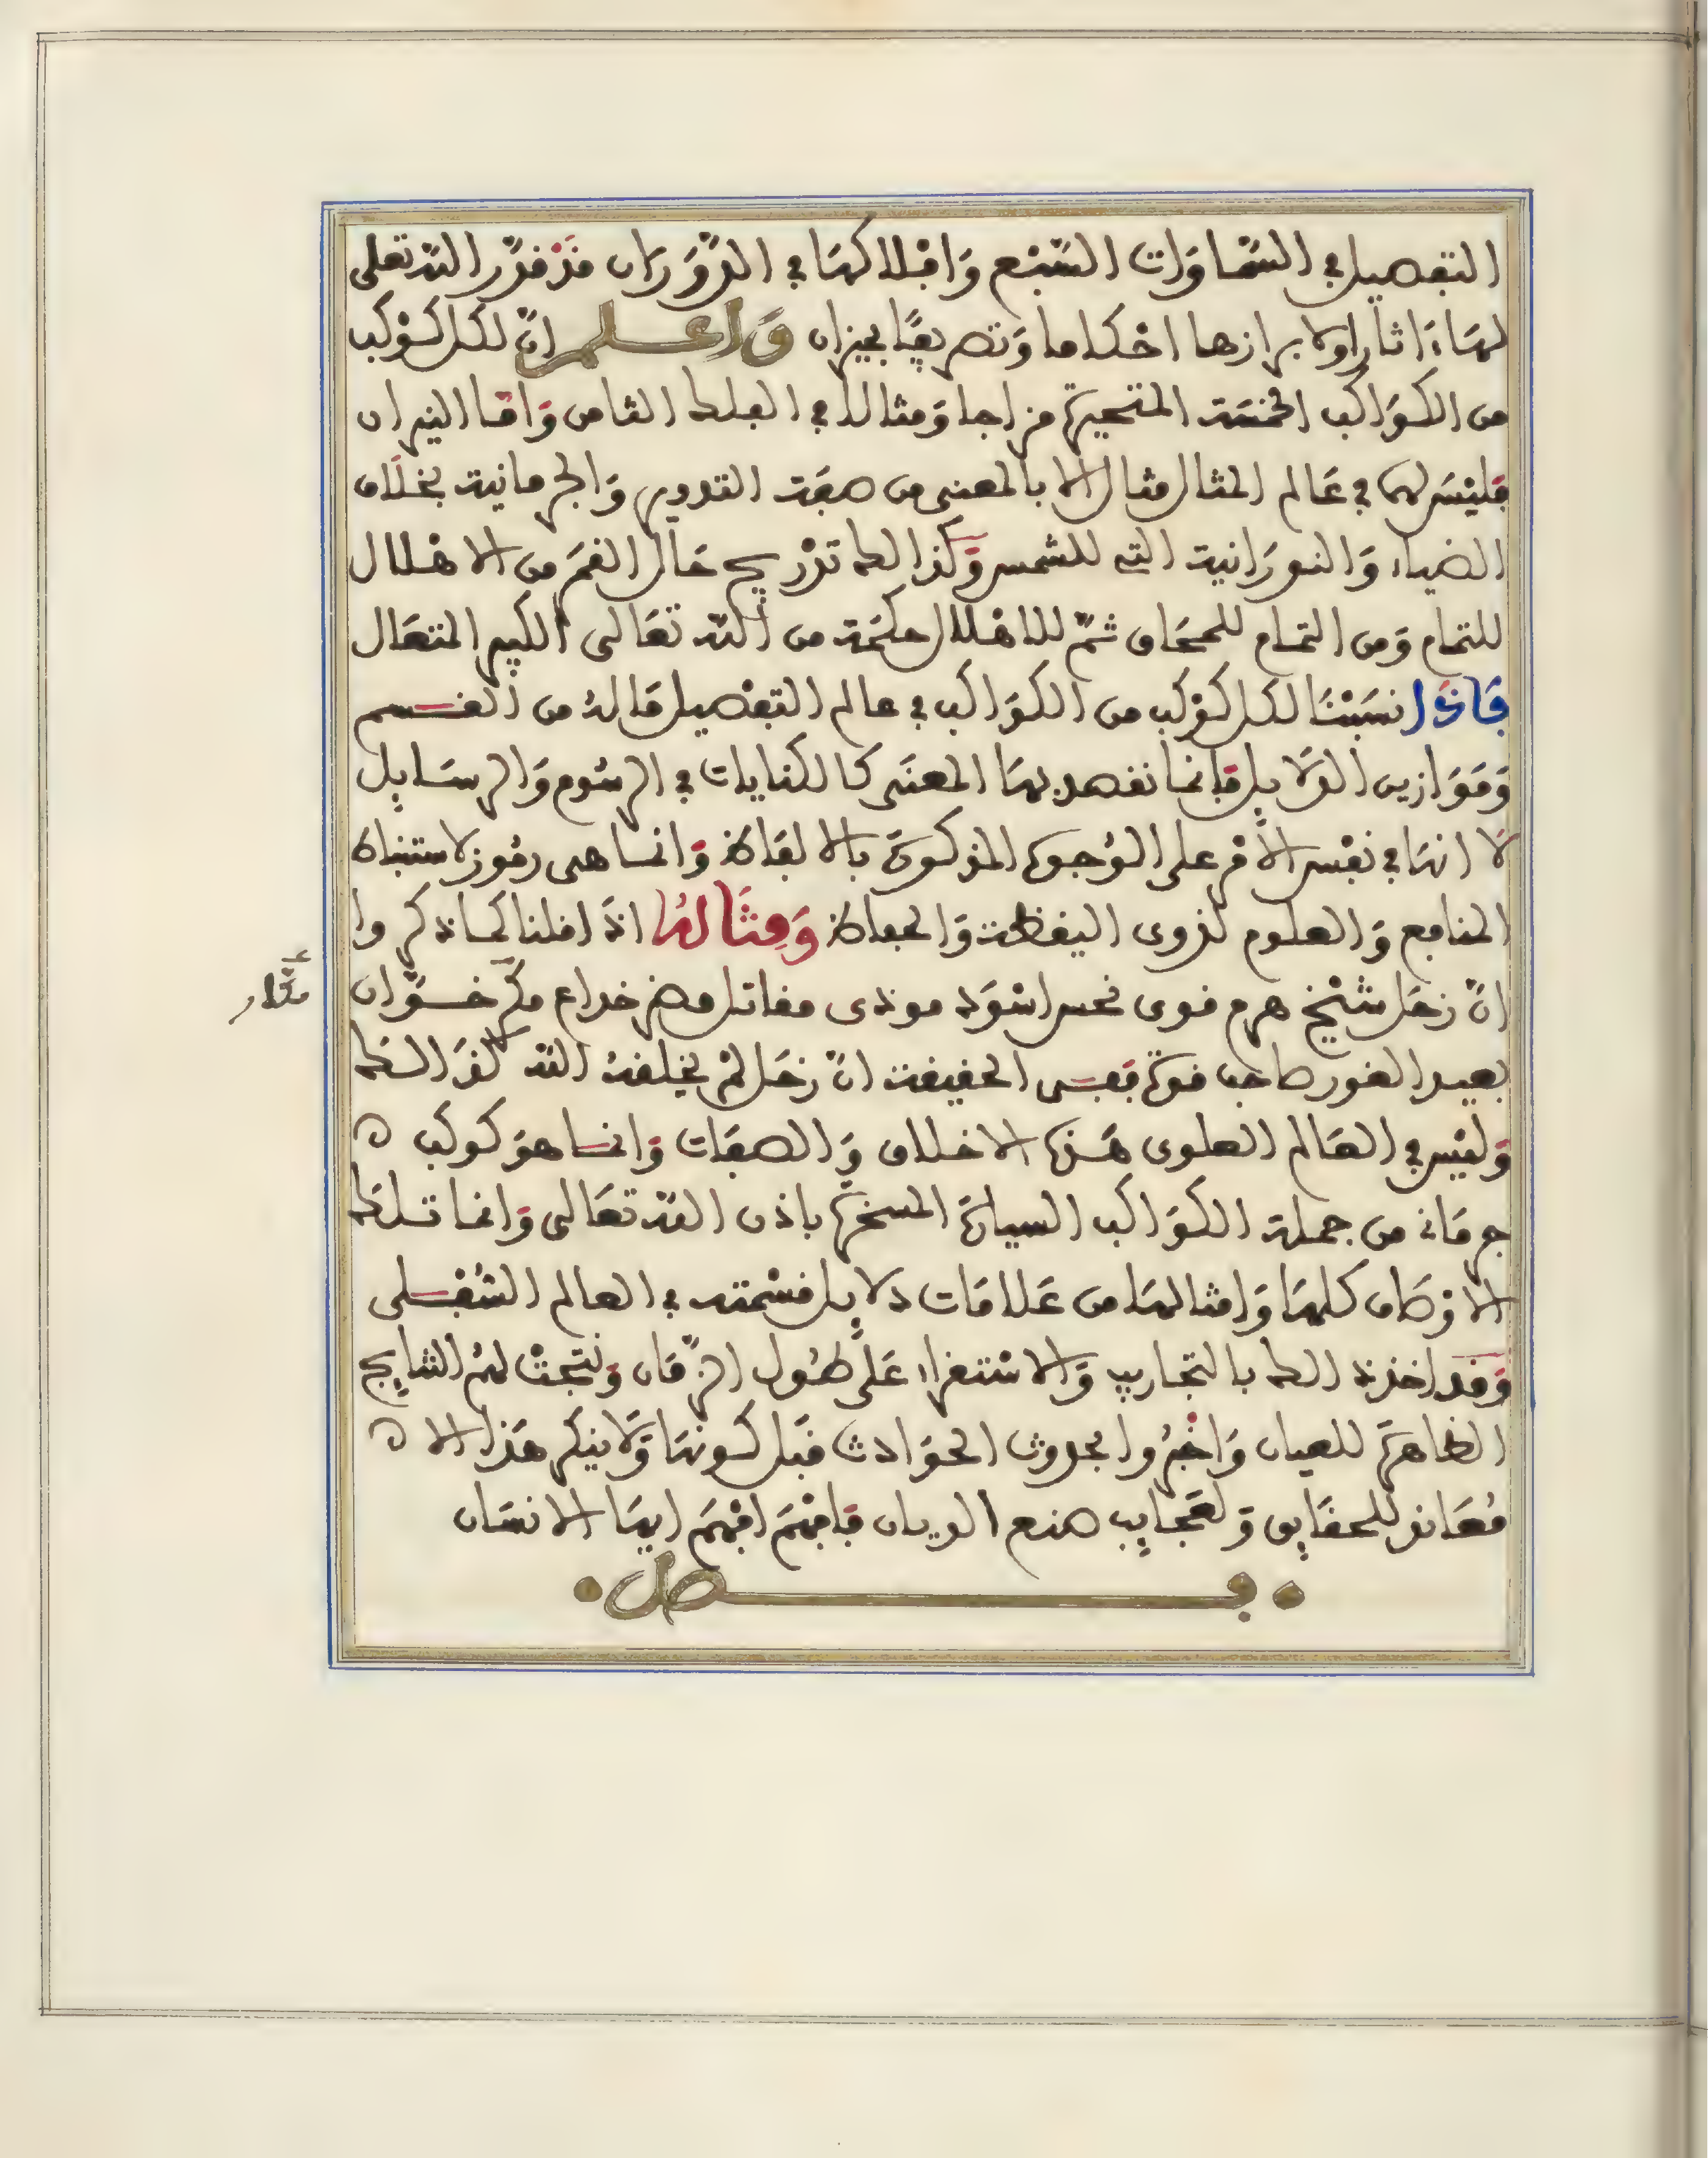 التفصيل في السَّمَاوَات السَّبْع وَافْلاكهَا في الدَّوَرَان قَدْ قدَّر الله تعلى
لهَا ءَاثارا ولابرازها احْكاما وَتصريفًا بميزان وَاعلم انّ لكل كَوْكب
من الكوَاكب الخمسَة المتحيرة مزاجا وَمثالا في الفلك الثامن وَامّا النيران
فليْسَ لهما في عَالم المثال مثال الا بالمعنى من صفَة التدوير وَالجرمانية بخلاف
الضياء وَالنورَانية التي للشمس وَكذالك تدْريج حَال القمَر من الاهْلال
للتمام وَمن التمام للمحَاق ثمّ للاهْلال حكمَة من الله تعَالى الكبير المتعَال
فَاذَا نسَبْنَا لكل كوْكب من الكوَاكب في عالم التفْصيل مَا لهُ من القسم
وَمَوَازين الدَّلايل فانما نقصد بهَا المعنَى كالكنايات في الرسُوم وَالرسَايل
لا انهَا في نفْس الأمْر على الوُجوه المذكورَة بالالفَاظ وَانما هى رمُوز لاستنباط
المنافع وَالعلوم لذوى اليقظة وَالحفاظ وَمِثَالهُ اذا قلنا كما ذكروا
انّ زحَل شيْخ هرم قوى نحس اسْوَد موذى مقاتل مضر خداع مكّر خَوَّان
مكَّار
بعيد الغور صاحب قوة ففى الحقيقة انّ زحَل لمْ يخلقهُ الله كذَالك
وَليْس في العَالم العلوى هَذه الاخلاق وَالصفَات وَانما هوَ كوكب ه
جرمَانى من جملة الكوَاكب السيارَة المسخرة باذن الله تعَالى وَانما تلك
الاوْصَاف كلهَا وَامثالهَا من عَلامَات دلايل قسْمته في العالم السُّفْلى
وَقد اخذ ذالك بالتجاريب وَالاسْتقراء عَلَى طُول الزّمَان وَنتجتْ لهُم النتايج
الظاهرَة للعيان وَاخْبرُوا بحدوث الحوَادث قبْل كونهَا وَلا ينكر هَذا الا ه
مُعَاند للحقَايق وَلعَجَايب صنع الديان فافْهَم افْهَم ايهَا الانسَان
• فصل •